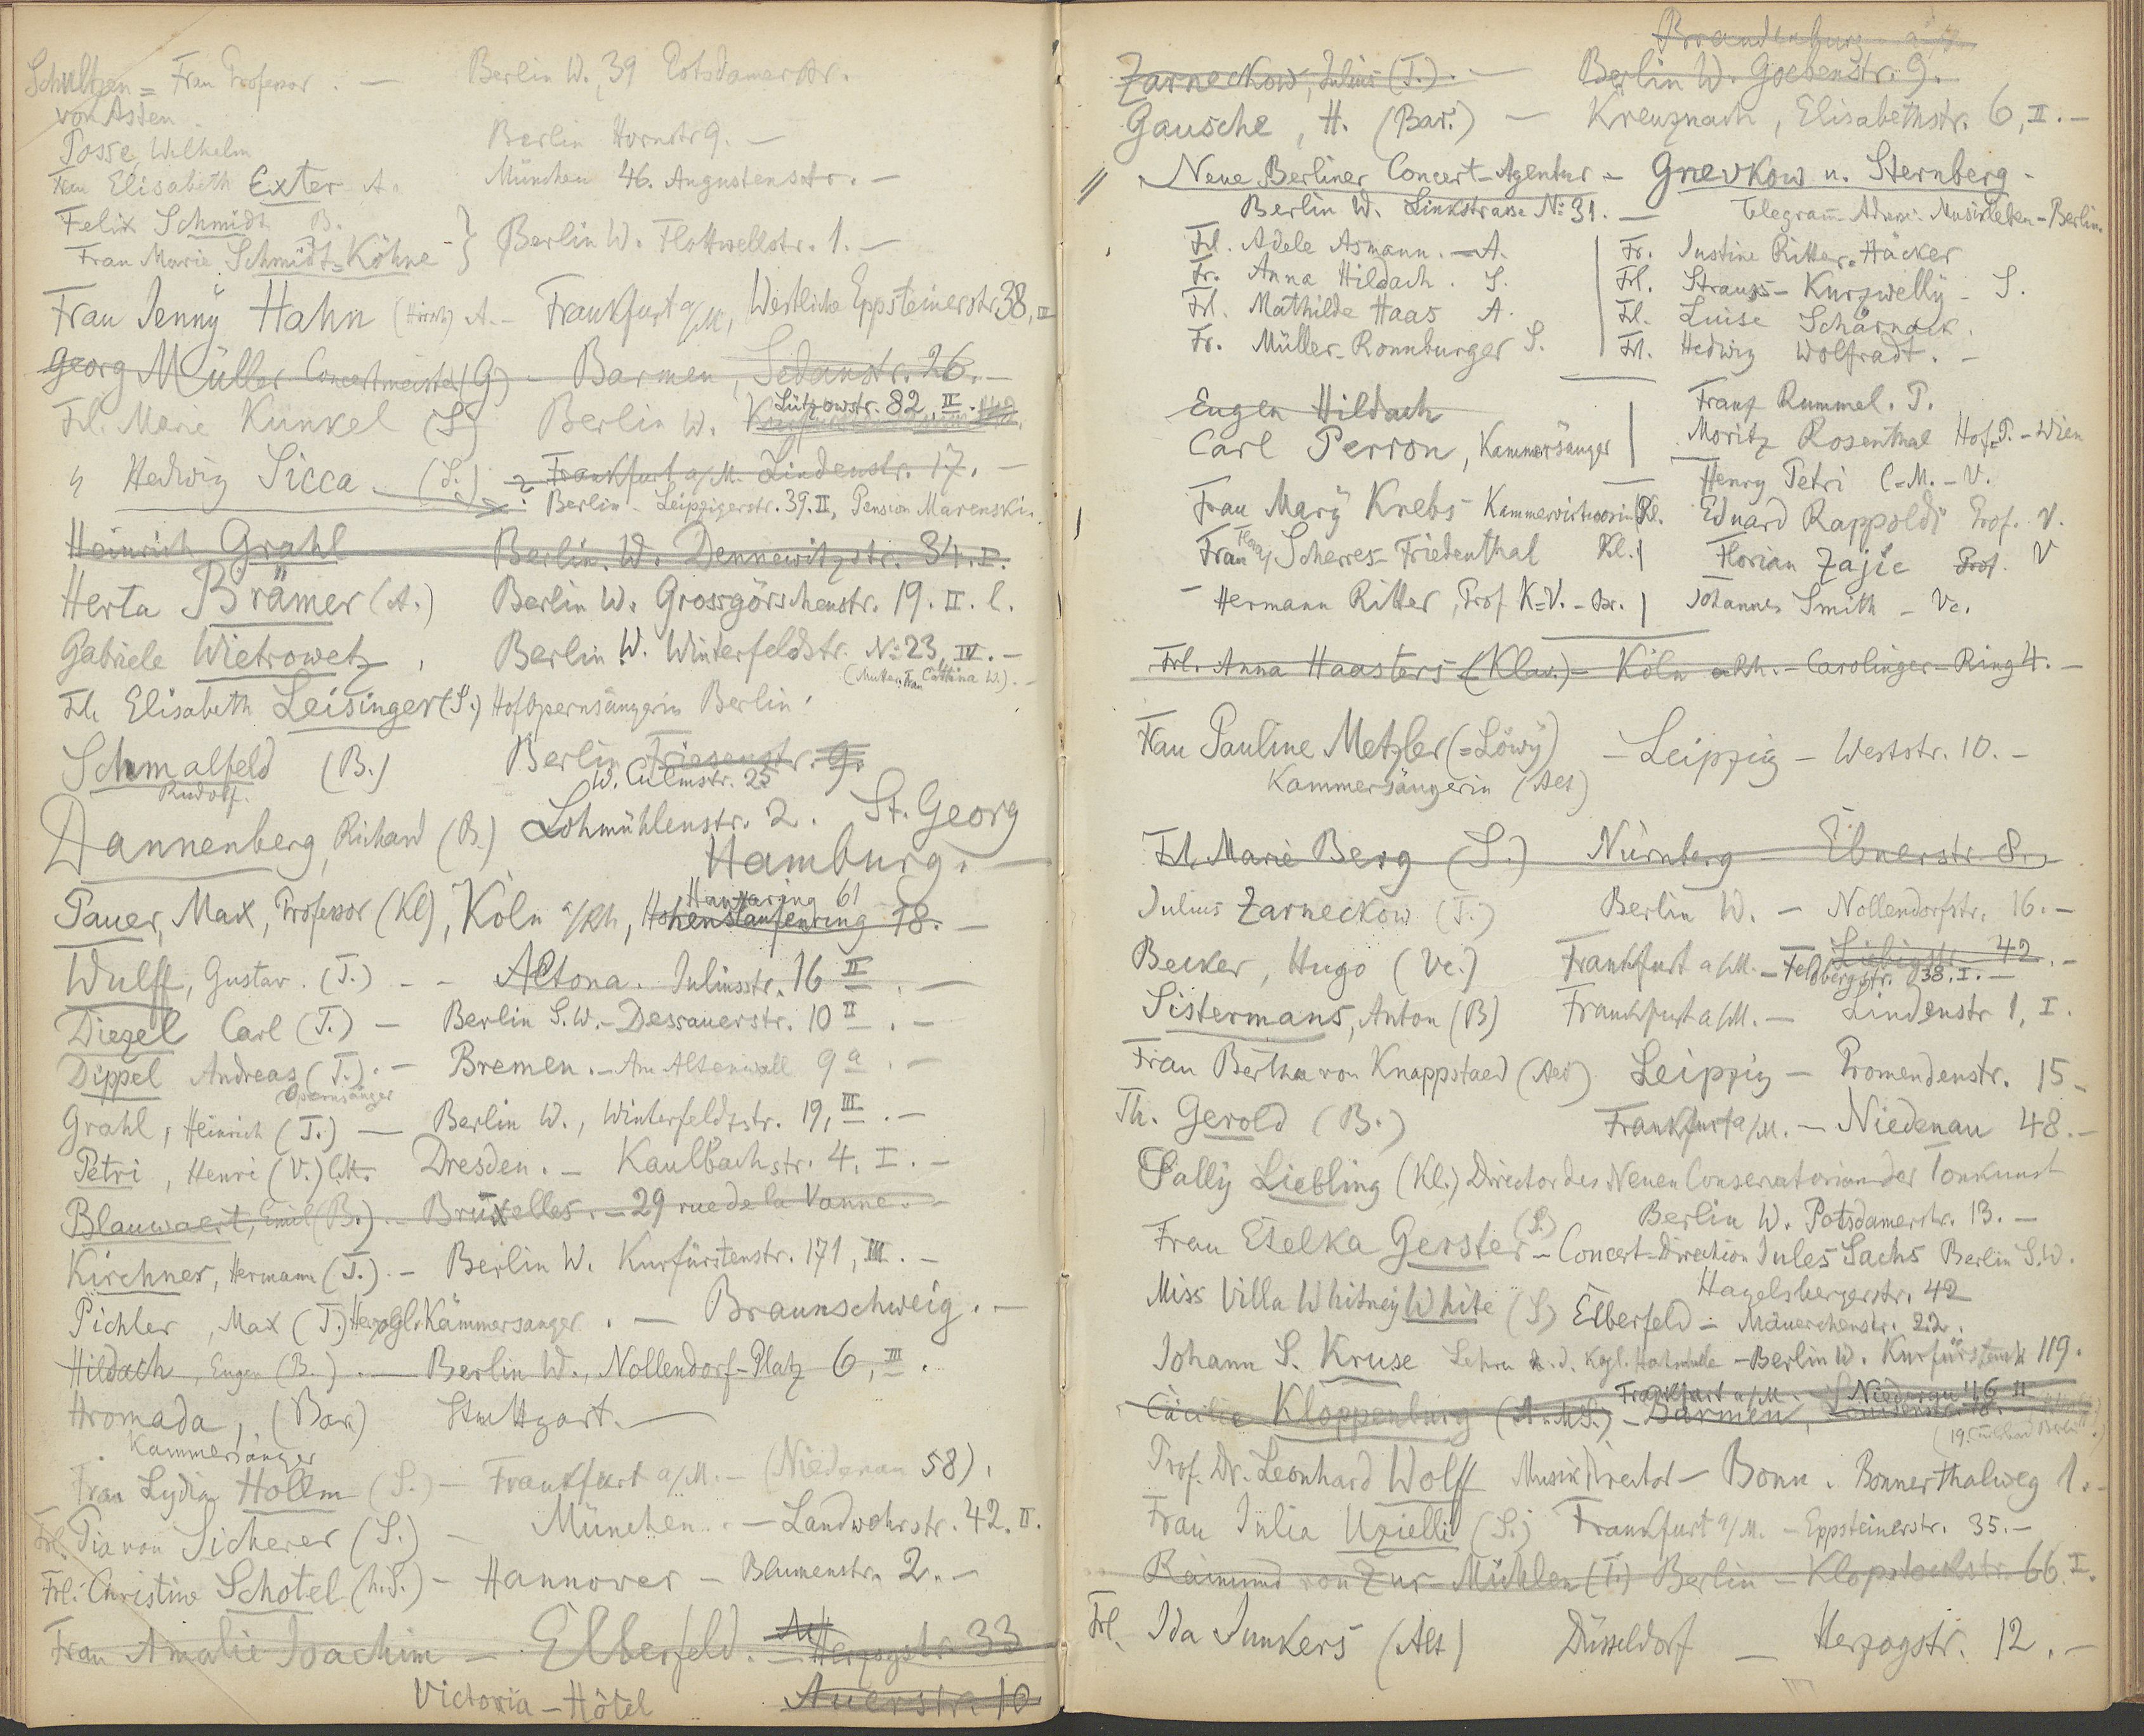 Schultzen = Frau Professor. — Berlin W. 39 Potsdamerstr.
von Asten.
Posse, Wilhelm Berlin Hornstr 9. —
Frau Elisabeth Exter A. München 46. Augustenstr. —
Felix Schmidt B.
Frau Marie Schmidt=Köhne - } Berlin W. Flottwellstr. 1. —
Frau Jenny Hahn A. - Frankfurt a/M, Westliche Eppsteinerstr. 38, II
Georg Müller Concertmeister (G) - Barmen, Sedanstr. 26. —
Lützowstr. 82, II.
Frl. Marie Kunkel (S) Berlin W.
" Hedwig Sicca. (S.) - Frankfurt a/M. Lindenstr. 17. —
? Berlin - Leipzigerstr. 39. II, Pension Marenski.
Heinrich Grahl Berlin. W. Dennewitzstr. 34. I.
Herta Brämer (A.) Berlin W. Grossgörschenstr. 19. II. l.
Gabriele Wietrowetz, Berlin W. Winterfeldstr. No 23, IV. —
(Mutter: Frau Cattina W.). -
Frl. Elisabeth Leisinger (S.) Hofopernsängerin Berlin.
Schmalfeld (B.) Berlin Friesenstr. 9.
Rudolf. W. Culmstr. 25
Dannenberg, Richard (B.) Lohmühlenstr. 2. St. Georg
Hamburg. —
Hansaring 61
Pauer, Max, Professor (Kl), Köln a/Rh, Hohenstaufenring 18. —
Wulff, Gustav. (T.) - - Altona. Juliusstr. 16 II. —
Diezel Carl (T.) — Berlin S.W. - Dessauerstr. 10 II. —
Dippel Andreas (T.). — Bremen. - Am Altenwall 9a. —
Opernsänger
Grahl, Heinrich (T.) — Berlin W., Winterfeldtstr. 19, III. —
Petri, Henri (V.) C.M. Dresden. — Kaulbachstr. 4, I. —
Blauwaert, Emil (B.). - Bruxelles. — 29 rue de la Vanne. —
Kirchner, Hermann (T.). - Berlin W. Kurfürstenstr. 171, III. —
Pichler, Max (T.) Herzogl. Kammersänger. — Braunschweig. —
Hildach, Eugen (B.). — Berlin W., Nollendorf-Platz 6, III.
Hromada, (Bar.) Stuttgart. —
Kammersänger
Frau Lydia Hollm (S.) - Frankfurt a/M. - (Niedenau 58).
Frl. Pia von Sicherer (S.) - München. - Landwehrstr. 42. II.
Frl. Christine Schotel (h.S.) - Hannover - Blumenstr. 2. —
Frau Amalie Joachim — Elberfeld. — Herzogstr. 33
Victoria - Hôtel Auerstr. 10
Brandenburg a/H.
Zarneckow, Julius (T.). — Berlin W. Goebenstr. 9.
Gausche, H. (Bar.) — Kreuznach, Elisabethstr. 6, II. —
Neue Berliner Concert-Agentur - Gnevkow u. Sternberg -
Berlin W. Linkstrasse No. 31. — Telegramm-Adresse: Musikleben-Berlin.
Frl. Adele Asmann. — A. | Fr. Justine Ritter=Häcker
Fr. Anna Hildach. S. | Frl. Strauss-Kurzwelly - S.
Frl. Mathilde Haas A. | Frl. Luise Schärnack.
Fr. Müller-Ronnburger S. | Frl. Hedwig Wolfradt. —
Eugen Hildach | Franz Rummel. P.
Carl Perron, Kammersänger | Moritz Rosenthal Hof=P. - Wien
Henry Petri C.-M. - V.
Frau Mary Krebs - Kammervirtuosin Kl. Eduard Rappoldi Prof. V.
Frau Flora Scherres-Friedenthal Kl. | Florian Zajic Prof. V
Hermann Ritter, Prof K=V. - Br. | Johannes Smith - Vc.
Frl. Anna Haasters (Klav.) - Köln a Rh. - Carolinger-Ring 4. —
Frau Pauline Metzler (=Löwy) - Leipzig - Weststr. 10. —
Kammersängerin (Alt)
Frl. Marie Berg (S.) Nürnberg Ebnerstr. 8.
Julius Zarneckow (T.) Berlin W. — Nollendorfstr. 16. —
Becker, Hugo (Vc.) Frankfurt a/M. - Liebigstr. 42. -
Feldbergstr. 38, I. —
Sistermans, Anton (B) Frankfurt a/M. — Lindenstr 1, I.
Frau Bertha von Knappstaed (Alt) Leipzig — Promendenstr. 15 -
Th. Gerold (B.) Frankfurt a/M. — Niedenau 48. —
Sally Liebling (Kl.) Director des Neuen Conservatorium der Tonkunst
Berlin W. Potsdamerstr. 13. —
Frau Etelka Gerster (S.) - Concert-Direction Jules Sachs Berlin S.W.
Hagelsbergerstr. 42
Miss Villa Whitney White (S) Elberfeld - Mäuerchenstr. 22.
Johann S. Kruse Lehrer a. d. Kgl. Hochschule - Berlin W. Kurfürstenstr 119.
Frankfurt a/M. Niedenau 46 II
Cäcilie Kloppenburg (A u. MS.) - Barmen,
Prof. Dr. Leonhard Wolff Musikdirector - Bonn. Bonnerthalweg 1. -
Frau Julia Uzielli (S.) Frankfurt a/M. - Eppsteinerstr. 35. —
Raimund von Zur-Mühlen (T.) Berlin - Klopstockstr. 66 I.
Frl. Ida Junkers (Alt) Düsseldorf — Herzogstr. 12. —